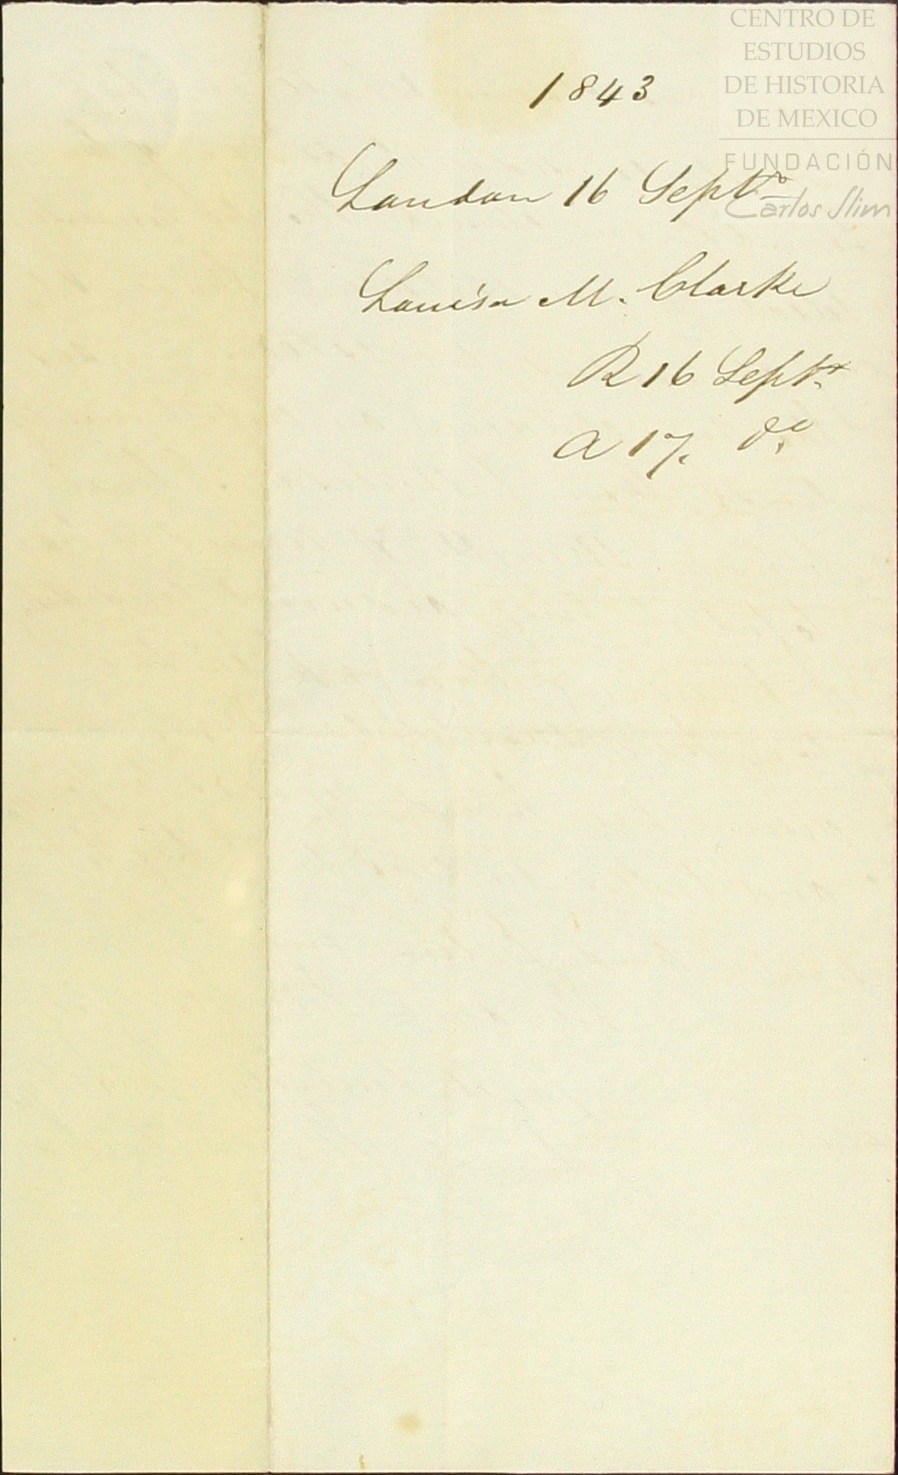 CENTRO DE
ESTUDIOS
DE HISTORIA
DE MEXICO
FUNDACIÓN
Carlos Slim
1843
London 16 Septo
Louisa M. Clarke
R 16 Sept.
A 17. do